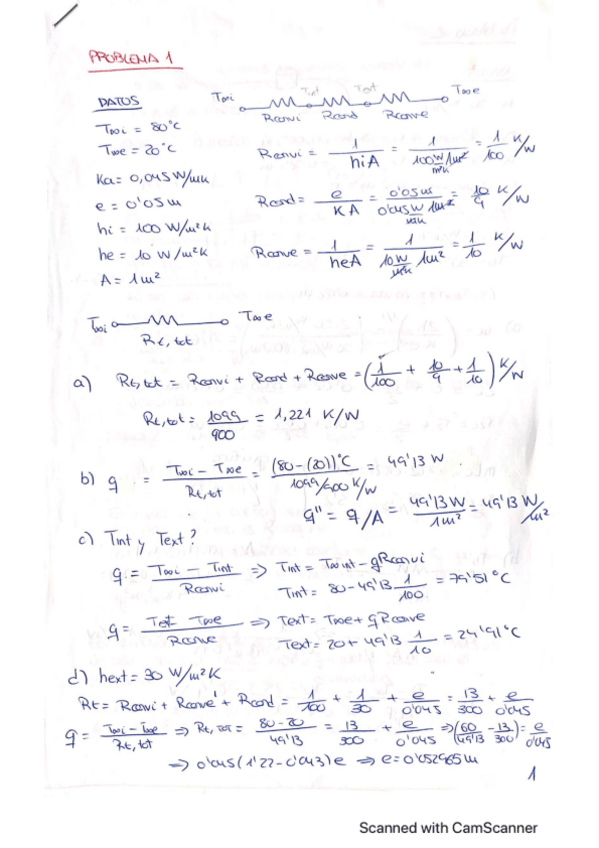 PROBLEMA 1
DATOS
T∞i Tint Text T∞e
Rconvi Rcond Rconve
T∞i = 80°C
T∞e = 20°C
Ka = 0,045 W/mk
e = 0'05 m
hi = 100 W/m²k
he = 10 W/m²K
A = 1 m²
Rconvi = 1/hiA = 1/(100 W/m²K 1m²) = 1/100 K/W
Rcond = e/KA = 0'05m/(0'045 W/mK 1m²) = 10/9 K/W
Rconve = 1/heA = 1/(10 W/m²K 1m²) = 1/10 K/W
T∞i T∞e
Rt, tot
a) Rt,tot = Rconvi + Rcond + Rconve = (1/100 + 10/9 + 1/10) K/W
Rt,tot = 1099/900 = 1,221 K/W
b) q = (T∞i - T∞e)/Rt,tot = (80-(20))°C/(1099/900 K/W) = 49'13 W
q" = q/A = 49'13 W/1 m² = 49'13 W/m²
c) Tint y Text?
q = (T∞i - Tint)/Rconvi ⇒ Tint = T∞int - qRconvi
Tint = 80 - 49'13 1/100 = 79'51°C
q = (Text - T∞e)/Rconve ⇒ Text = T∞e + qRconve
Text = 20 + 49'13 1/10 = 24'91°C
d) hext = 30 W/m²K
Rt = Rconvi + Rconve' + Rcond = 1/100 + 1/30 + e/0'045 = 13/300 + e/0'045
q = (T∞i - T∞e)/Rt,tot ⇒ Rt,TOT = (80-20)/49'13 = 13/300 + e/0'045 ⇒ (60/49'13 - 13/300) = e/0'045
⇒ 0'045(1'22-0'043) e ⇒ e = 0'052965 m
1
Scanned with CamScanner